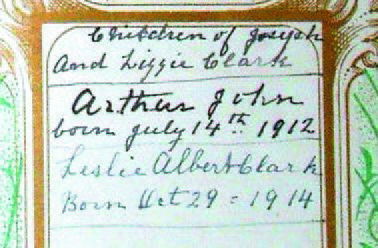 Children of Joseph
And Lizzie Clark
Arthur John
born july 14th 1912
Leslie Albert Clark
Born Oct 29 = 1914